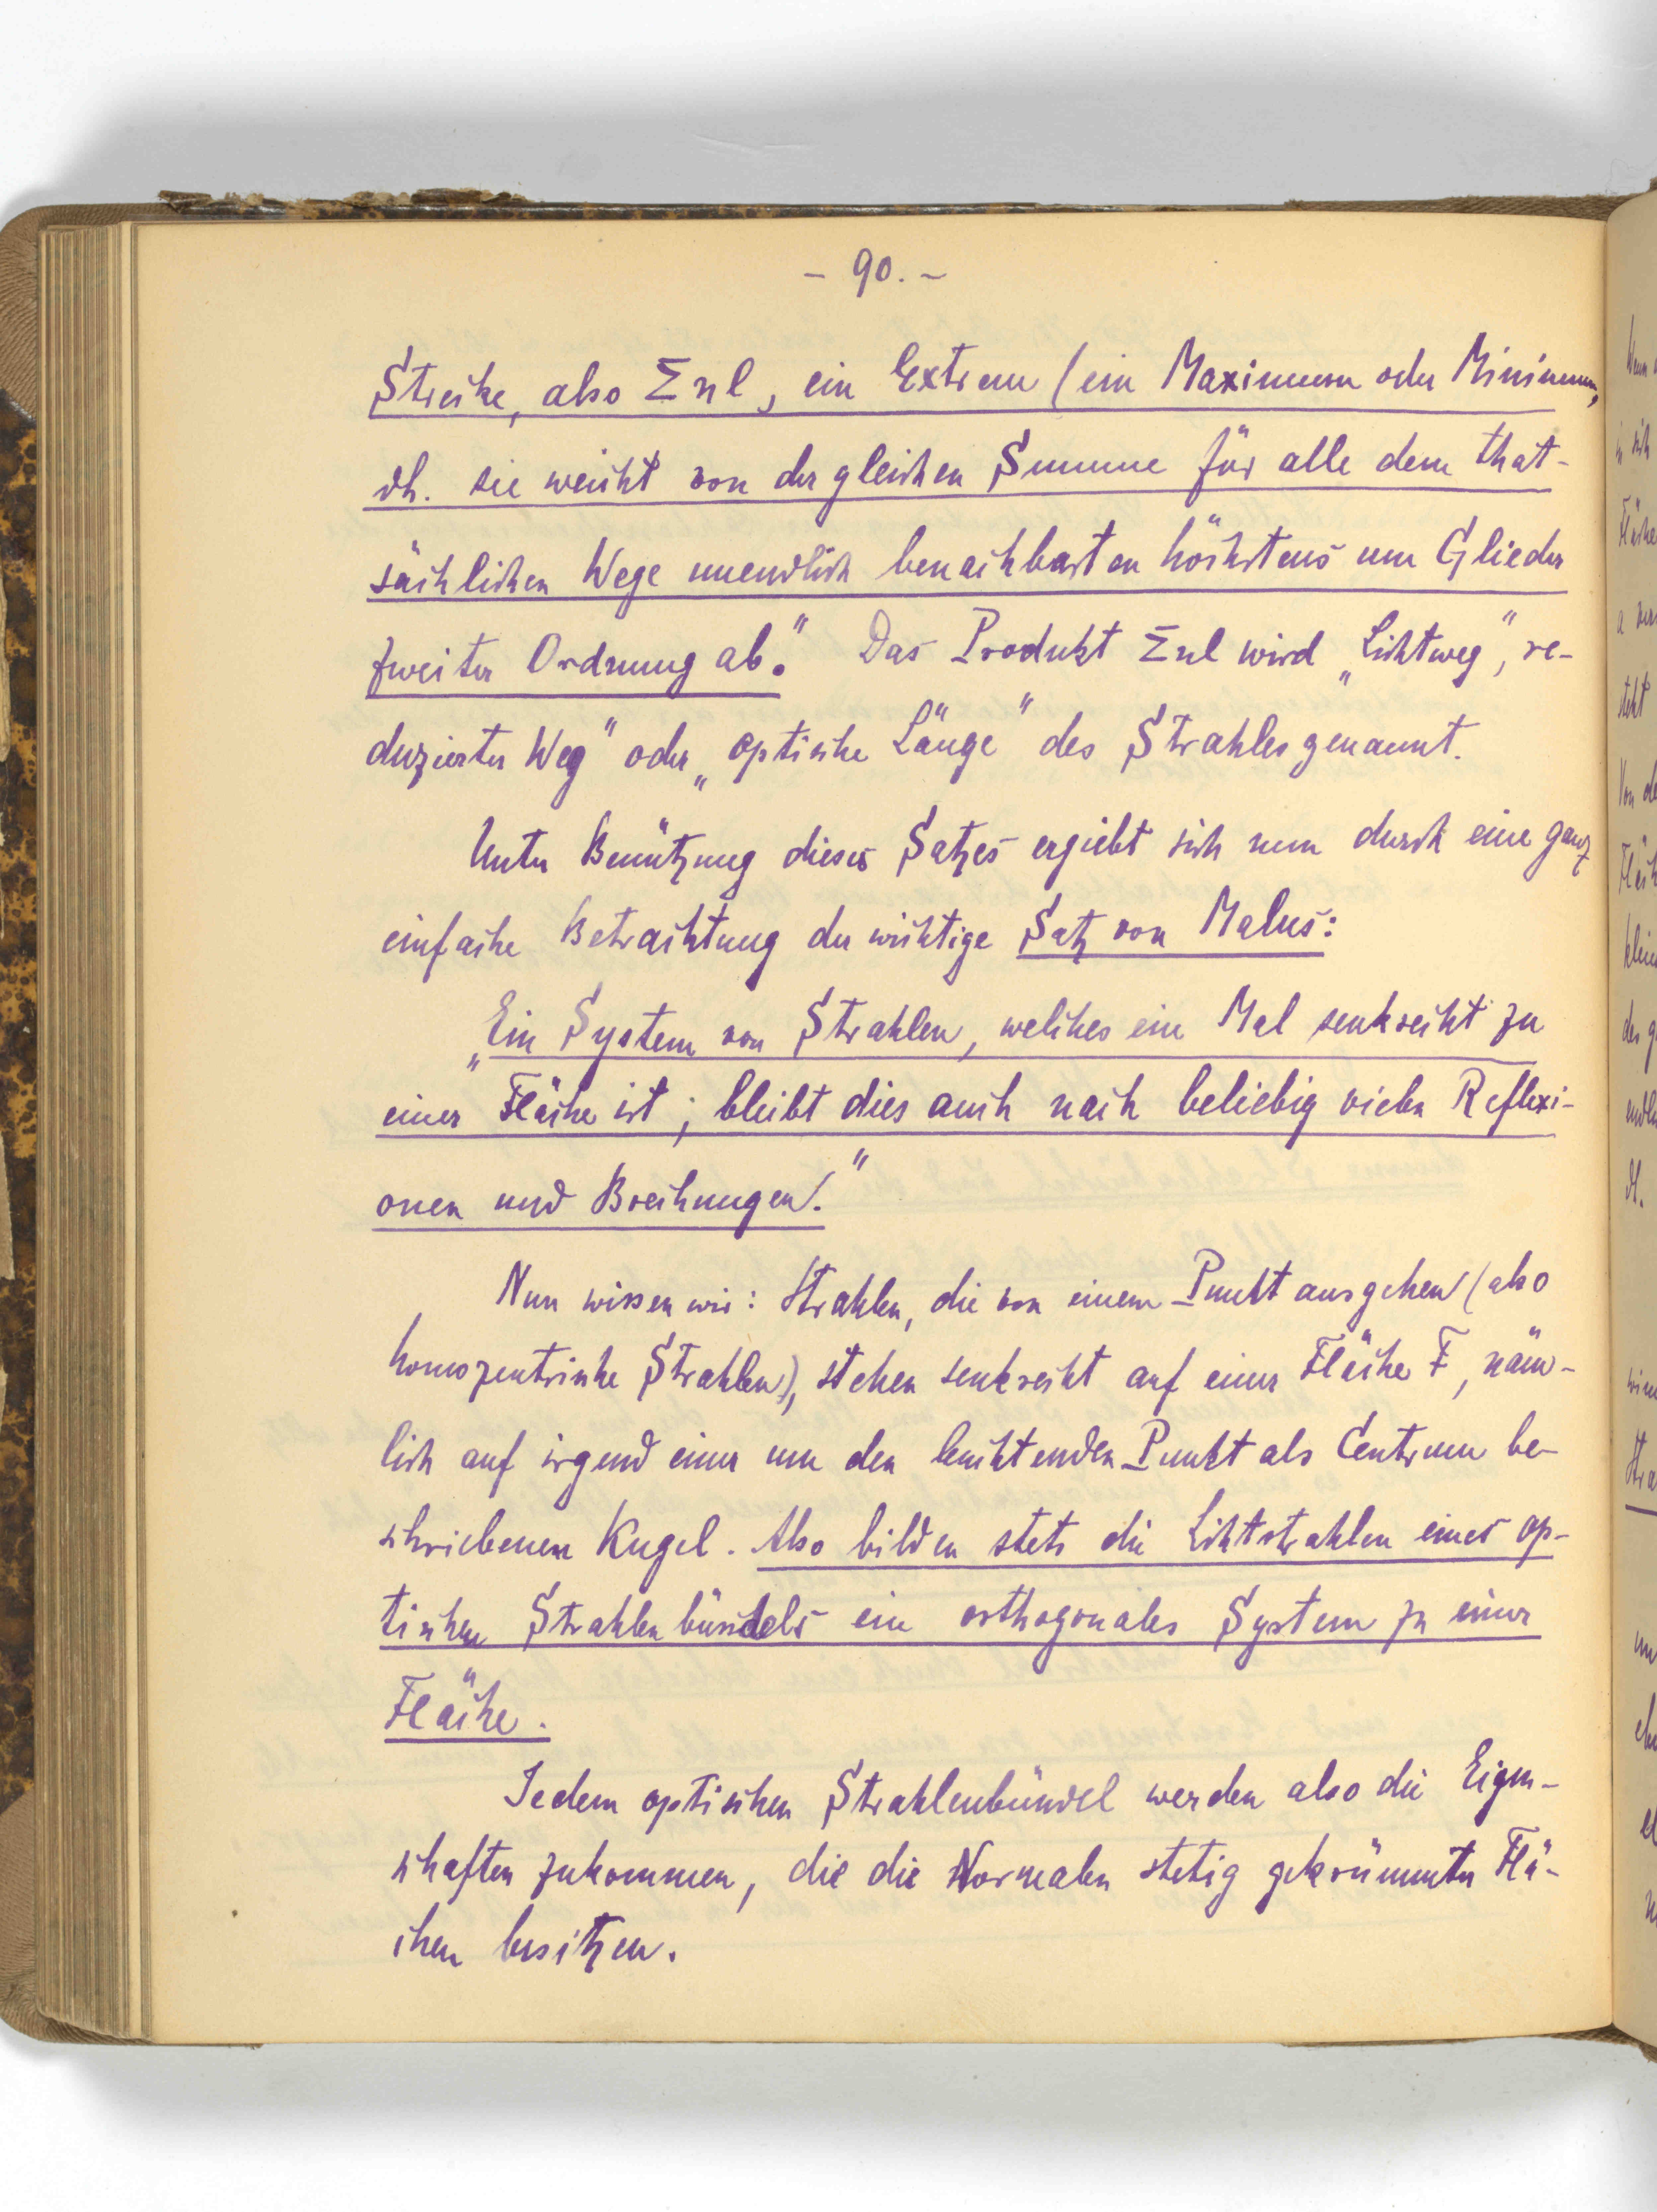 - 90. -
Strecke, also Σnl, ein Extrem (ein Maximum oder Minimum,
dh. sie weicht von der gleichen Summe für alle dem that-
sächlichen Wege unendlich benachbarten höchstens um Glieder
zweiter Ordnung ab." Das Produkt Σnl wird „Lichtweg", re-
duzierter Weg" oder „optische Länge" des Strahles genannt.
Unter Benützung dieses Satzes ergiebt sich nun durch eine ganz
einfache Betrachtung der wichtige Satz von Malus:
„Ein System von Strahlen, welches ein Mal senkrecht zu
einer Fläche ist, bleibt dies auch nach beliebig vielen Reflexi-
onen und Brechungen."
Nun wissen wir: Strahlen, die von einem Punkt ausgehen (also
homozentrische Strahlen), stehen senkrecht auf einer Fläche F, näm-
lich auf irgend einer um den leuchtenden Punkt als Centrum be-
schriebenen Kugel. Also bilden stets die Lichtstrahlen eines op-
tischen Strahlenbündels ein orthogonales System zu einer
Fläche.
Jedem optischen Strahlenbündel werden also die Eigen-
schaften zukommen, die die Normalen stetig gekrümmter Flä-
chen besitzen.